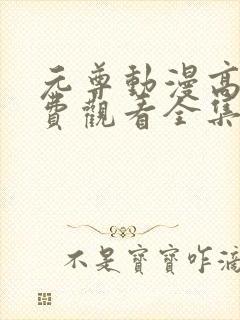 元尊動漫高
費觀看全集
不是寶寶咋滴